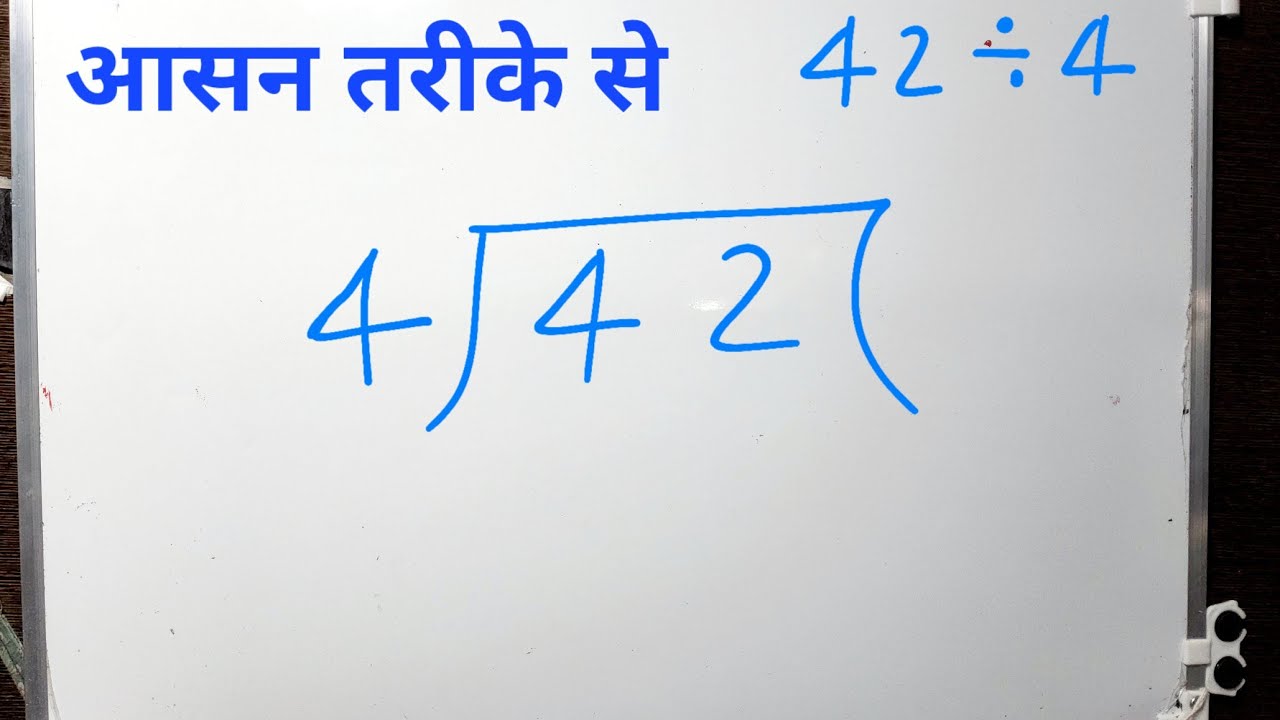 आसन तरीके से 42 ÷ 4
4)42(